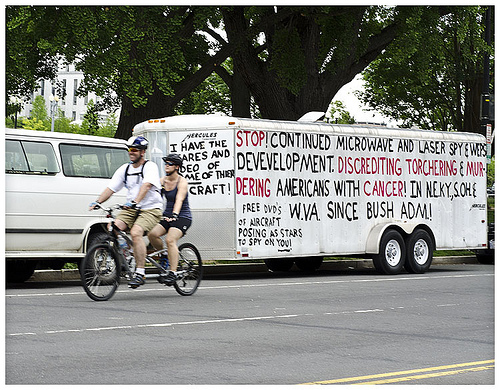 HERCULES
I HAVE THE
ARES AND
DEO OF
ME OF THIER
CRAFT!
STOP! CONTINUED MICROWAVE AND LASER SPY & WEPS
DEVELOPMENT. DISCREDITING TORCHERING & MUR-
DERING AMERICANS WITH CANCER! IN NE.KY, S.OH. &
W.VA. SINCE BUSH ADM!
FREE DVD'S
OF AIRCRAFT
POSING AS STARS
TO SPY ON YOU!